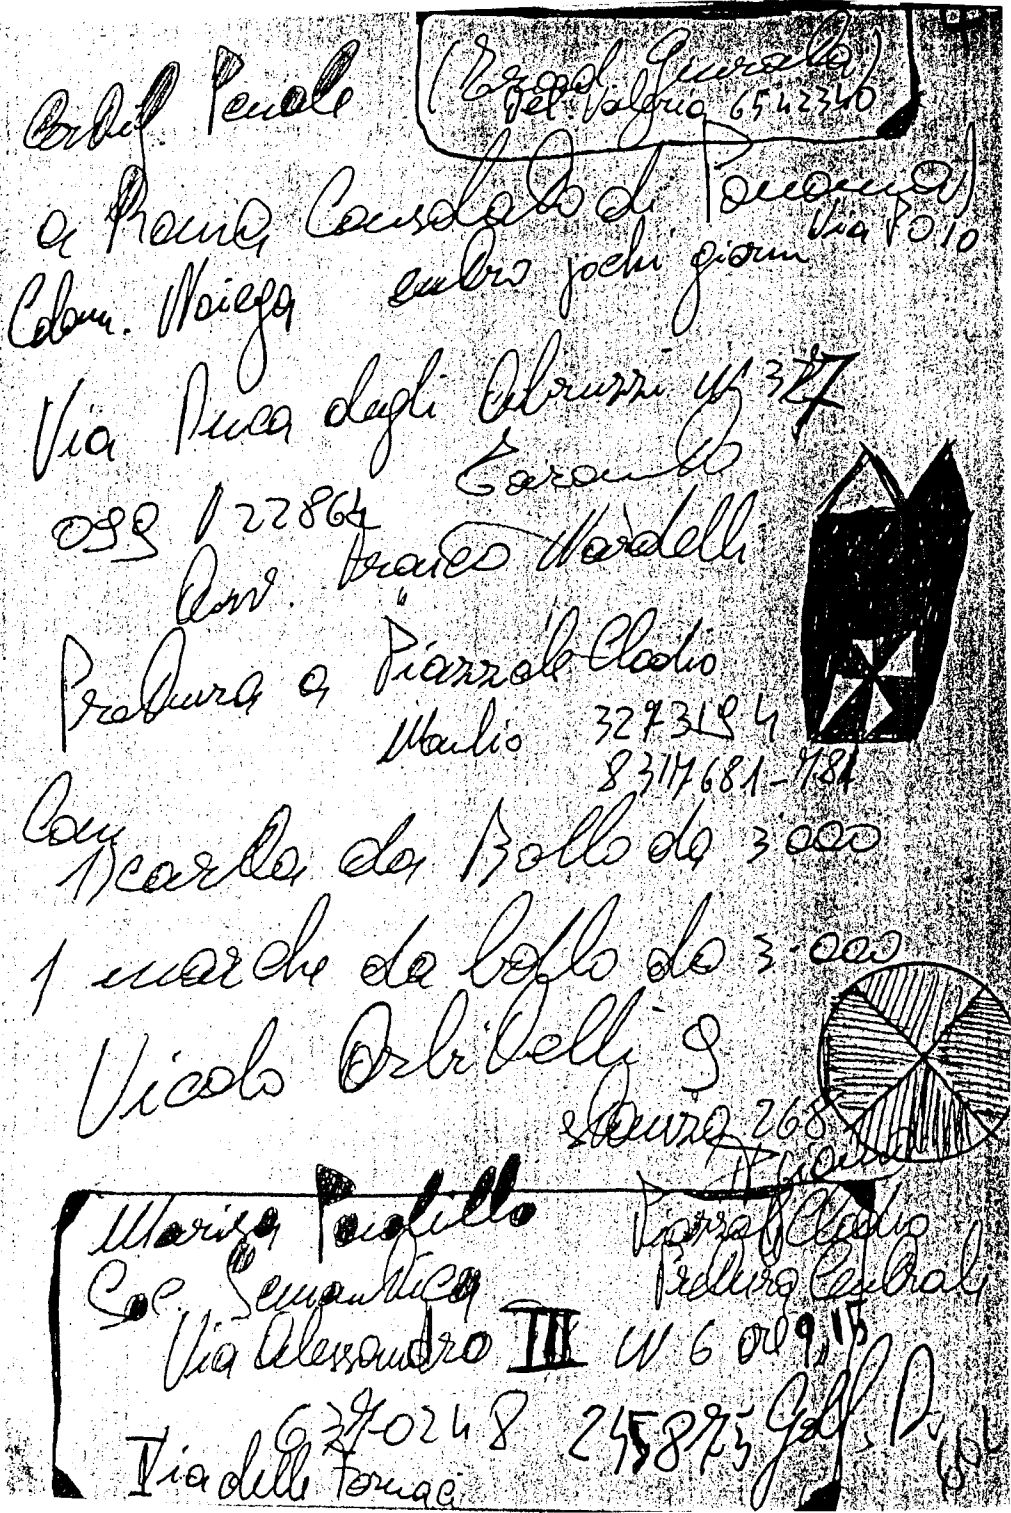 (Trad. Giurata)
Tel. Valeria 6542340
Certif. Penale
a Roma Consolato di Panama)
Via Po 10
Colonn. Noiega entro pochi giorni
Via Duca degli Abruzzi N 327
Taranto
099 / 22864
Avv. Franco Nardelli
Pretura a Piazzale Clodio
Manlio 3273194
8317681-781
Con
1) carta da Bollo da 3000
1 marche da bollo da 3.000
Vicolo Orbitelli 9
stanza 268
Marisa Pardello
Piazzale Clodio
Soc. Semantica
Pretura Centrale
Via Alessandro III N 6 ore 9,15
6370248
245875
Via delle Fornaci